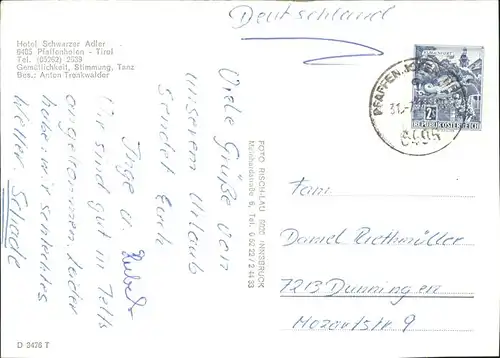 Deutschland
Hotel Schwarzer Adler
6405 Pfaffenhofen - Tirol
Tel. (05262) 2539
Gemütlichkeit, Stimmung, Tanz
Bes.: Anton Trenkwalder
Viele Grüße von
unserem Urlaub
Sendet Euch
Inge u.
Wir sind gut in Telfs
angekommen. Leider
haben wir schlechtes
Wetter. Schade
FOTO RISCH-LAU 6020 INNSBRUCK
Tel. 0 52 22 / 2 44 93
PFAFFENHOFEN
31.-7.
6405
2S
REPUBLIK ÖSTERREICH
Fam.
Daniel Riethmüller
7213 Dunningen
Mozartstr. 9
D 9476 T